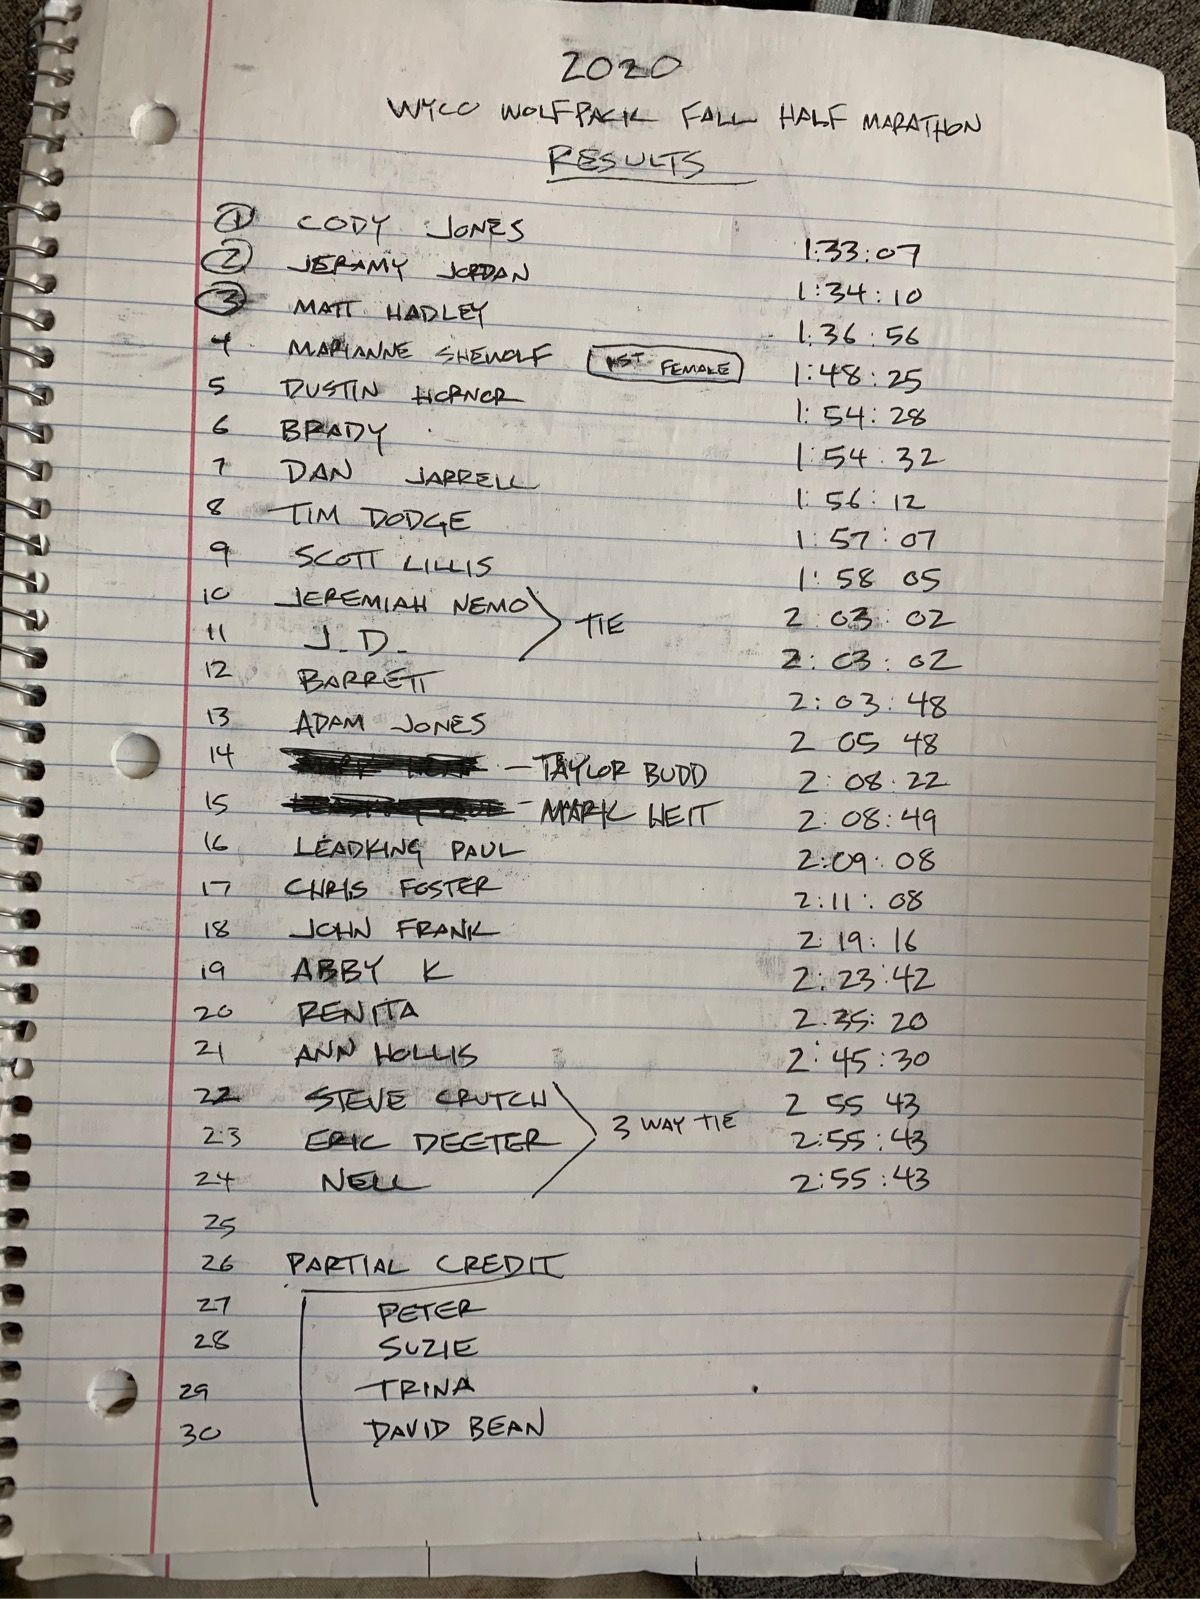 2020
WYCO WOLFPACK FALL HALF MARATHON
RESULTS
1 CODY JONES 1:33:07
2 JERAMY JORDAN 1:34:10
3 MATT HADLEY 1:36:56
4 MARIANNE SHEWOLF 1ST FEMALE 1:48:25
5 DUSTIN HORNOR 1:54:28
6 BRADY 1:54:32
7 DAN JARRELL 1:56:12
8 TIM DODGE 1:57:07
9 SCOTT LILLIS 1:58 05
10 JEREMIAH NEMO 2:03:02
TIE
11 J.D. 2:03:02
12 BARRETT 2:03:48
13 ADAM JONES 2 05 48
14 - TAYLOR BUDD 2:08:22
15 - MARK HEIT 2:08:49
16 LEADKING PAUL 2:09:08
17 CHRIS FOSTER 2:11:08
18 JOHN FRANK 2:19:16
19 ABBY K 2:23:42
20 RENITA 2:35:20
21 ANN HOLLIS 2:45:30
22 STEVE CRUTCH 2 55 43
23 ERIC DEETER 3 WAY TIE 2:55:43
24 NELL 2:55:43
25
26 PARTIAL CREDIT
27 PETER
28 SUZIE
29 TRINA
30 DAVID BEAN